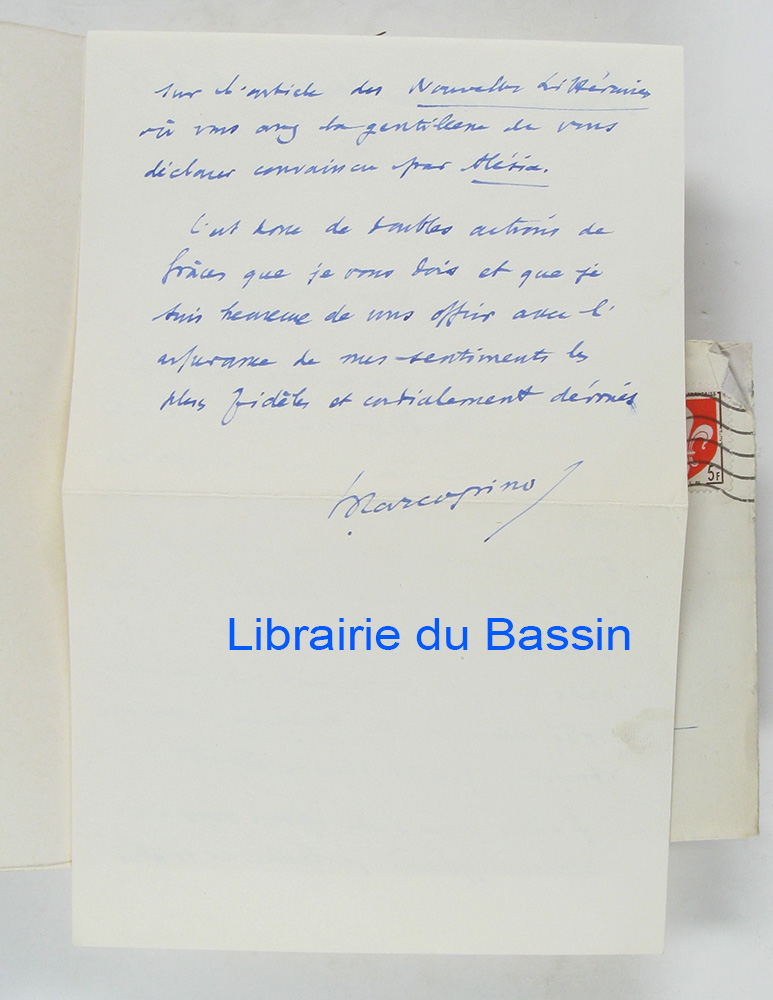 sur l'article des Nouvelles Littéraires
où vous avez la gentillesse de vous
déclarer convaincu par Alésia.
C'est donc de doubles actions de
grâces que je vous dois et que je
suis heureuse de vous offrir avec l'
assurance de mes sentiments les
plus fidèles et cordialement dévoués
5F
Librairie du Bassin